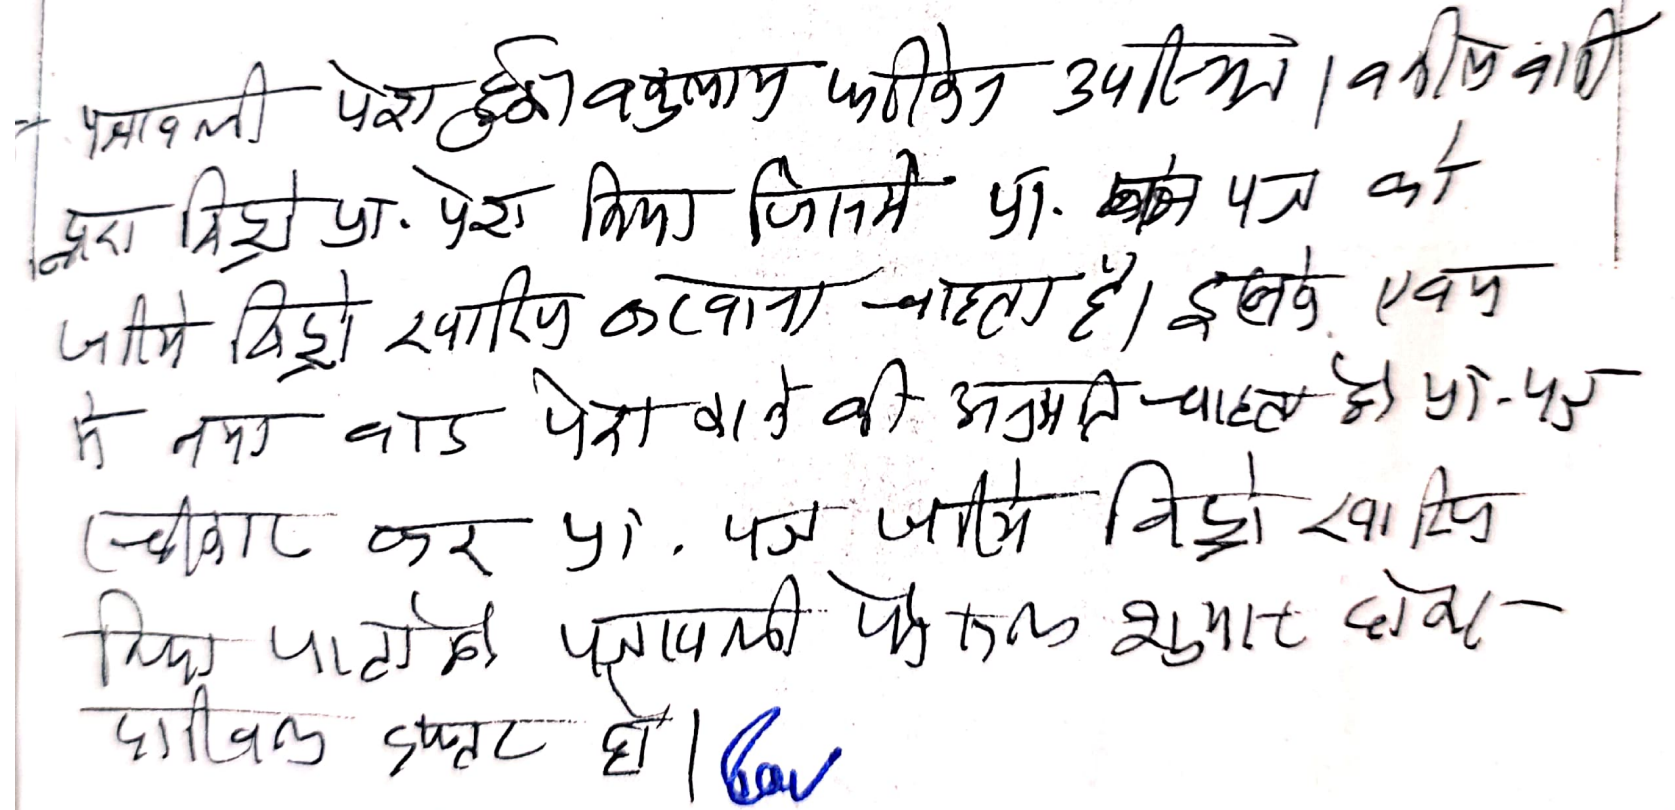 पत्रावली पेश हुई। वकुलाय फरीकेन उपस्थित। वकील वादी
द्वारा विड्रो प्रा. पेश किया जिसमें प्रा. पत्र को
जरिये विड्रो खारिज करवाना चाहता है। इसके एवज
में नया वाद पेश करने की अनुमति चाहता है। प्रा. पत्र
स्वीकार कर प्रा. पत्र जरिये विड्रो खारिज
किया जाता है। पत्रावली फैसल शुमार होकर
दाखिल दफ्तर हो।